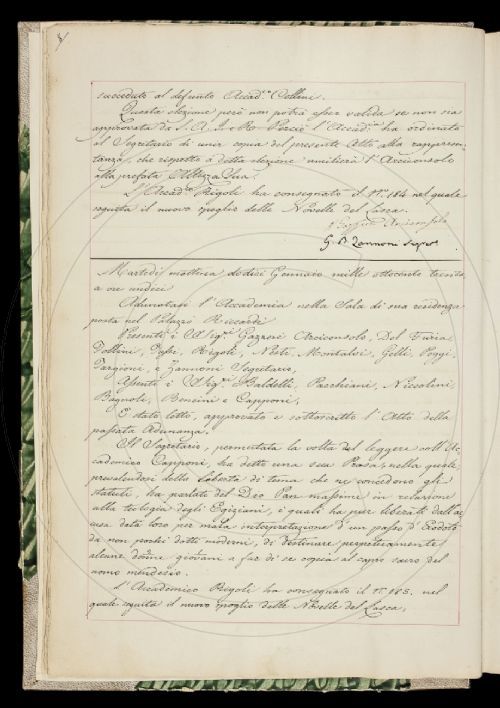 succeduto al defunto Accad.co Collini.
Questa elezione però non potrà esser valida se non sia
approvata da S. A. I. e R. Perciò l'Accad.a ha ordinato
al Segretario di unir copia del presente Atto alla rappresen-
tanza, che rispetto a detta elezione umilierà l'Arciconsolo
alla prefata Altezza Sua.
L'Accad.co Rigoli ha consegnato il N.o 184 nel quale
seguita il nuovo spoglio delle Novelle del Lasca.
Arciconsolo
G. B. Zannoni Segret.
Martedì mattina dodici Gennaio mille ottocento trenta
a ore undici
Adunatasi l'Accademia nella Sala di sua residenza
posta nel Palazzo Riccardi
Presenti i Sig.ri Gazzeri Arciconsolo, Del Furia,
Follini, Papi, Rigoli, Nesti, Montalvi, Gelli, Poggi,
Targioni, e Zannoni Segretario,
Assenti i Sig.ri Baldelli, Pacchiani, Niccolini,
Bagnoli, Bencini e Capponi,
È stato letto, approvato e sottoscritto l'Atto della
passata Adunanza.
Il Segretario, permutata la volta del leggere coll'Ac-
cademico Capponi, ha detto una sua Prosa, nella quale
prevalendosi della libertà di tema che ne concedono gli
statuti, ha parlato del Dio Pan massime in relazione
alla teologia degli Egiziani, i quali ha pur liberati dall'ac-
cusa data loro per mala interpretazione d'un passo d'Erodoto
da non pochi dotti moderni, di destinare perpetuamente
alcune donne giovani a far di se copia al capro sacro del
nomo mendesio.
L'Accademico Rigoli ha consegnato il N.o 185. nel
quale seguita il nuovo spoglio delle Novelle del Lasca.